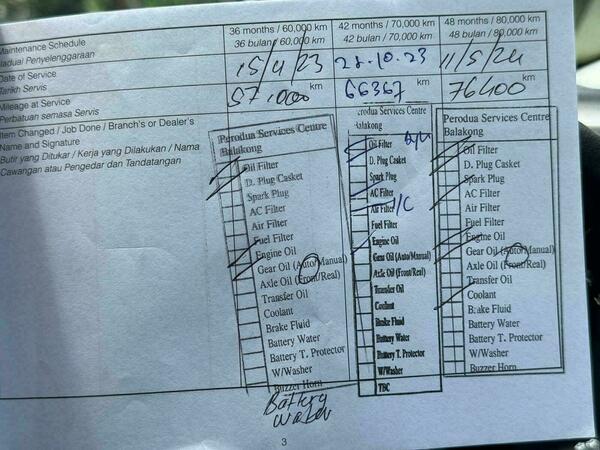 Maintenance Schedule
Jadual Penyelenggaraan
36 months / 60,000 km
36 bulan / 60,000 km
42 months / 70,000 km
42 bulan / 70,000 km
48 months / 80,000 km
48 bulan / 80,000 km
Date of Service
Tarikh Servis
15/4/23
28.10.23
11/5/24
Mileage at Service
Perbatuan semasa Servis
57,000 km
66367 km
76400 km
Item Changed / Job Done / Branch's or Dealer's
Name and Signature
Butir yang Ditukar / Kerja yang Dilakukan / Nama
Cawangan atau Pengedar dan Tandatangan
Perodua Services Centre
Balakong
Oil Filter
D. Plug Casket
Spark Plug
AC Filter
Air Filter
Fuel Filter
Engine Oil
Gear Oil (Auto/Manual)
Axle Oil (Front/Real)
Transfer Oil
Coolant
Brake Fluid
Battery Water
Battery T. Protector
W/Washer
Buzzer Horn
Battery
water
Perodua Services Centre
Balakong
Oil Filter
D. Plug Casket
Spark Plug
AC Filter
Air Filter
Fuel Filter
Engine Oil
Gear Oil (Auto/Manual)
Axle Oil (Front/Real)
Transfer Oil
Coolant
Brake Fluid
Battery Water
Battery T. Protector
W/Washer
TBC
Perodua Services Centre
Balakong
Oil Filter
D. Plug Casket
Spark Plug
AC Filter
Air Filter
Fuel Filter
Engine Oil
Gear Oil (Auto/Manual)
Axle Oil (Front/Real)
Transfer Oil
Coolant
Brake Fluid
Battery Water
Battery T. Protector
W/Washer
Buzzer Horn
3